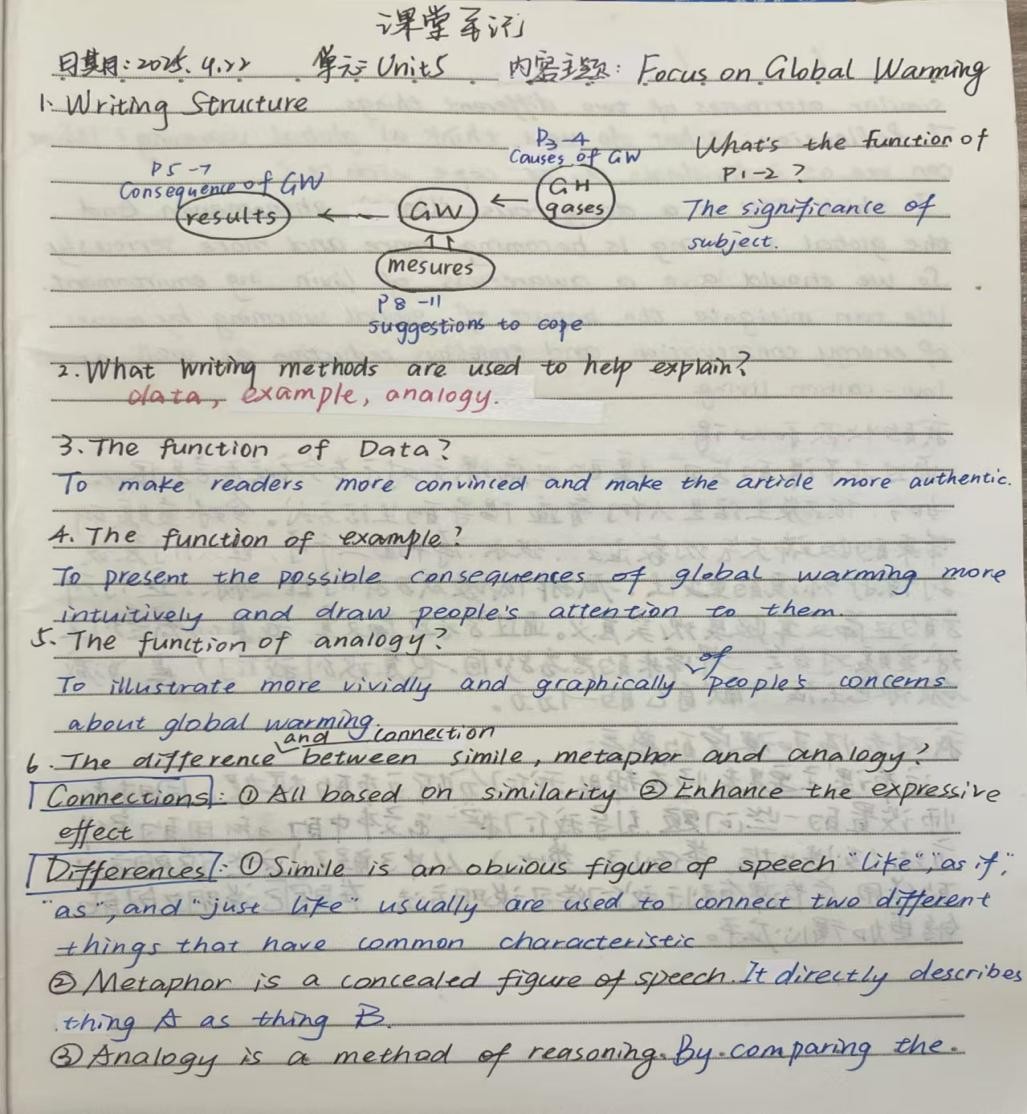 课堂笔记
日期:2025.4.22 单元:Unit5 内容主题:Focus on Global Warming
1. Writing Structure
P3-4
Causes of GW
What's the function of
P1-2?
P5-7
Consequence of GW
results ← GW ← GH gases
The significance of
subject.
mesures
P8-11
suggestions to cope
2. What writing methods are used to help explain?
data, example, analogy.
3. The function of Data?
To make readers more convinced and make the article more authentic.
4. The function of example?
To present the possible consequences of global warming more
intuitively and draw people's attention to them.
5. The function of analogy?
To illustrate more vividly and graphically of people's concerns
about global warming.
6. The difference and connection between simile, metaphor and analogy?
Connections: ① All based on similarity ② Enhance the expressive
effect
Differences: ① Simile is an obvious figure of speech "like", "as if",
"as", and "just like" usually are used to connect two different
things that have common characteristic
② Metaphor is a concealed figure of speech. It directly describes
thing A as thing B.
③ Analogy is a method of reasoning. By comparing the